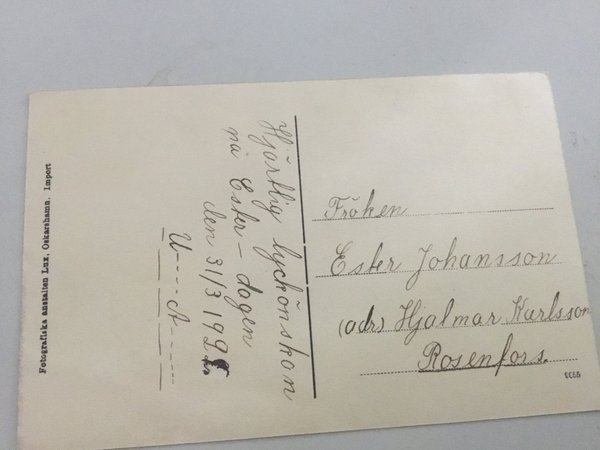 Fotografiska anstalten Lux, Oskarshamn. Import
Hjärtlig lyckönskan
på Ester-dagen
den 31/3 192
U----A-----
Fröken
Ester Johansson
(adr) Hjalmar Karlsson
Rosenfors.